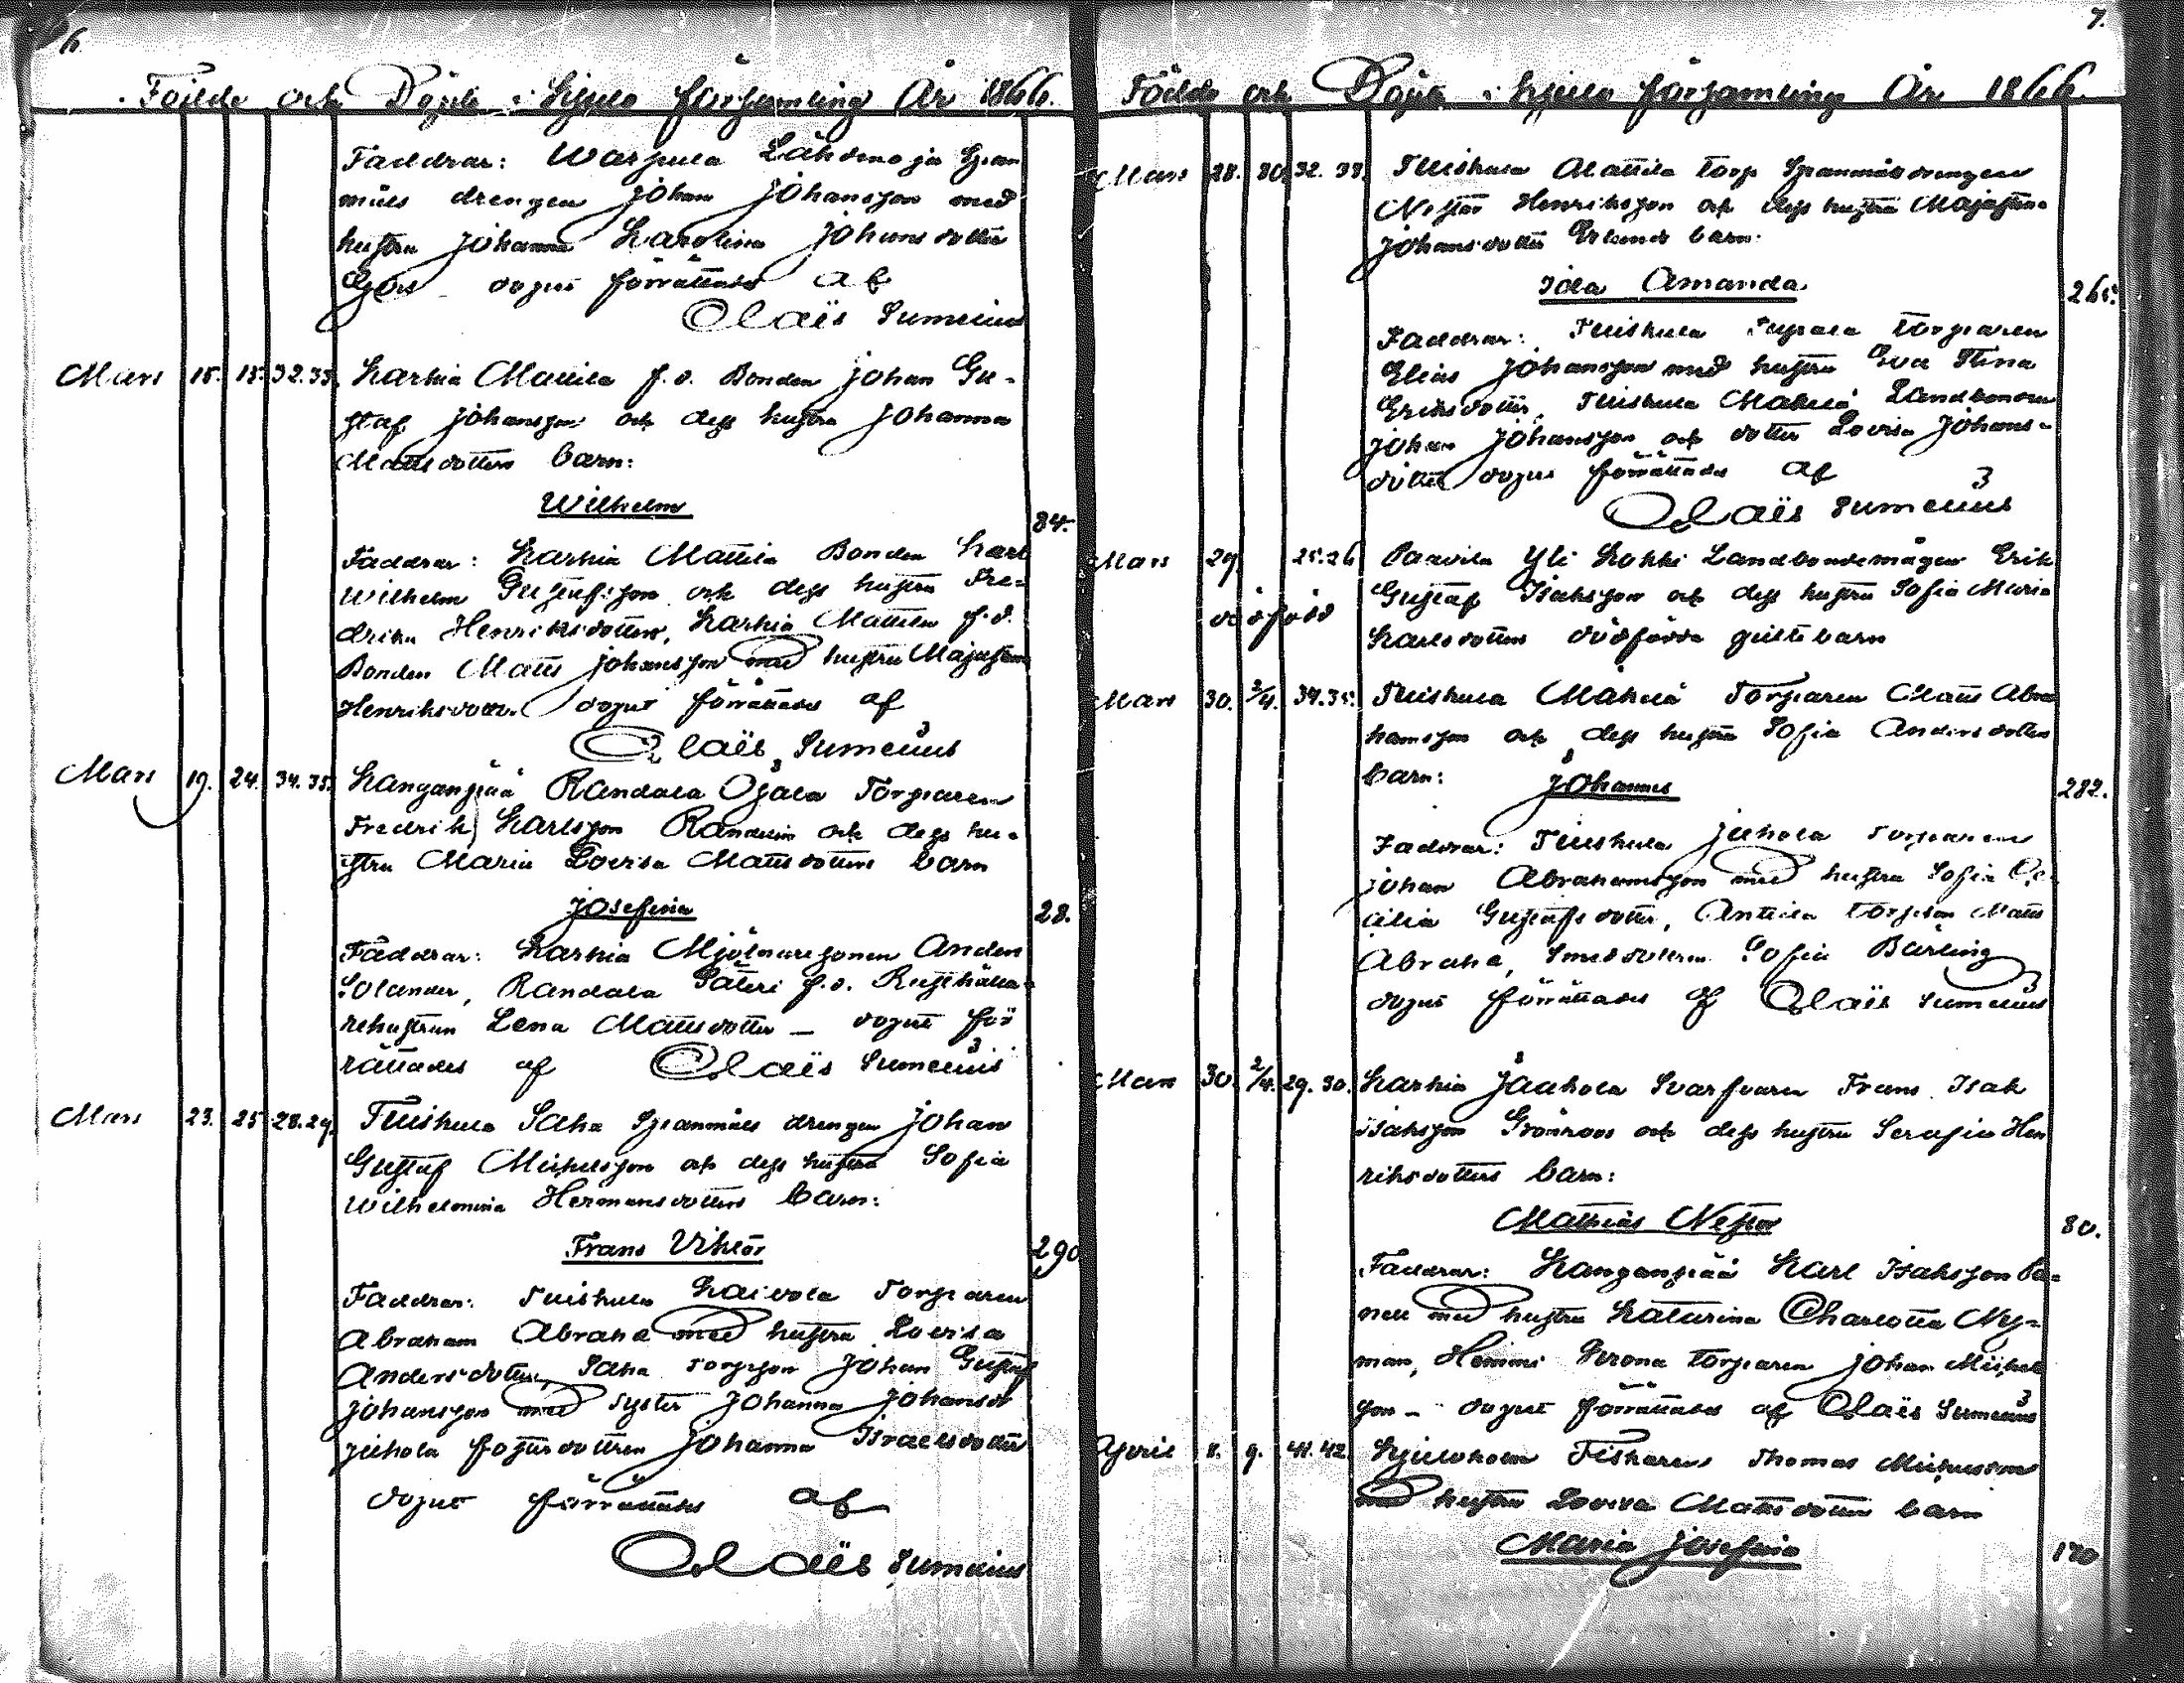 6.
Födde och Döpte i Kjulo församling År 1866.
Faddrar: Warpula Lähdenoja Span
måls drengen Johan Johansson med
hustru Johanna Karolina Johansdotter
dopet förrättades af
Olaïs Sumelius
Mars 15. 18. 32.33. Karhia Mattila f.d. Bonden Johan Gu-
staf Johansson och dess hustru Johanna
Mattsdotters barn:
Wilhelm
84.
Faddrar: Karhia Mattila Bonden Karl
Wilhelm Gustafsson och dess hustru Fre-
drika Henriksdotter, Karhia Mattila f.d.
Bonden Matts Johansson med hustru Majastina
Henriksdotter. dopet förrättades af
Olaïs Sumelius
Mars 19. 24. 34.35. Kanganpää Randala Ojala Torparen
Fredrik Karlsson Randelin och dess hu-
stru Maria Lovisa Mattsdotters barn
Josefina
28.
Faddrar: Karhia Mjölnaresonen Anders
Solander, Randala Säteri f.d. Rusthålla-
rehustrun Lena Mattsdotter – dopet för
rättades af Olaïs Sumelius
Mars 23. 25 28.29. Tuiskula Saha Spanmåls drengen Johan
Gustaf Michelsson och dess hustru Sofia
Wilhelmina Hermansdotters barn:
Frans Viktor
290
Faddrar: Tuiskula Kaivola Torparen
Abraham Abrahs med hustru Lovisa
Andersdotter, Saha torpson Johan Gustaf
Johansson med syster Johanna Johansdr
Juhola dottren Johanna Israelsdotter
dopet förrättades af
Olaïs Sumelius
7.
Födde och Döpte i Kjulo församling År 1866.
Mars 28. 30. 32.33. Tuiskula Mattila torp Spanmålsdrengen
Nestor Henriksson och dess hustru Majastina
Johansdotter Erlunds barn:
Ida Amanda
265.
Faddrar: Tuiskula Torparen
Elias Johansson med hustru Eva Stina
Eriksdotter, Tuiskula Mäkelä Landbonden
Johan Johansson och dotter Lovisa Johans-
dotter dopet förrättades af
Olaïs Sumelius
Mars 29. 25.26 Paavila Yli Kokki Landbondemågen Erik
Gustaf Isaksson och dess hustru Sofia Maria
dödfödd
Karlsdotters dödfödda gossebarn
Mars 30. 2/4. 34.35. Tuiskula Mäkelä Torparen Matts Abra
hamsson och dess hustru Sofia Andersdotters
barn: Johannes
282.
Faddrar: Tuiskula Juhola Torparen
Johan Abrahamsson med hustru Sofia Ce-
cilia Gustafsdotter, Anttila torpson Matts
Abrahs, Smedsdottren Sofia Bärling
dopet förrättades af Olaïs Sumelius
Mars 30. 2/4. 29.30. Karhia Jaakola Svarfvaren Frans Isak
Isaksson Grönroos och dess hustru Serafia Hen
riksdotters barn:
Mathias Nestor
80.
Faddrar: Kanganpää Karl Isaksson Pa-
nell med hustru Katarina Charlotta Ny-
man, Hemmi Verona torparen Johan Michel
son – dopet förrättades af Olaïs Sumelius
April 8. 9. 41.42. Kjuloholm Fiskaren Thomas Michelsson
med hustru Lovisa Mattsdotters barn
Maria Josefina
170